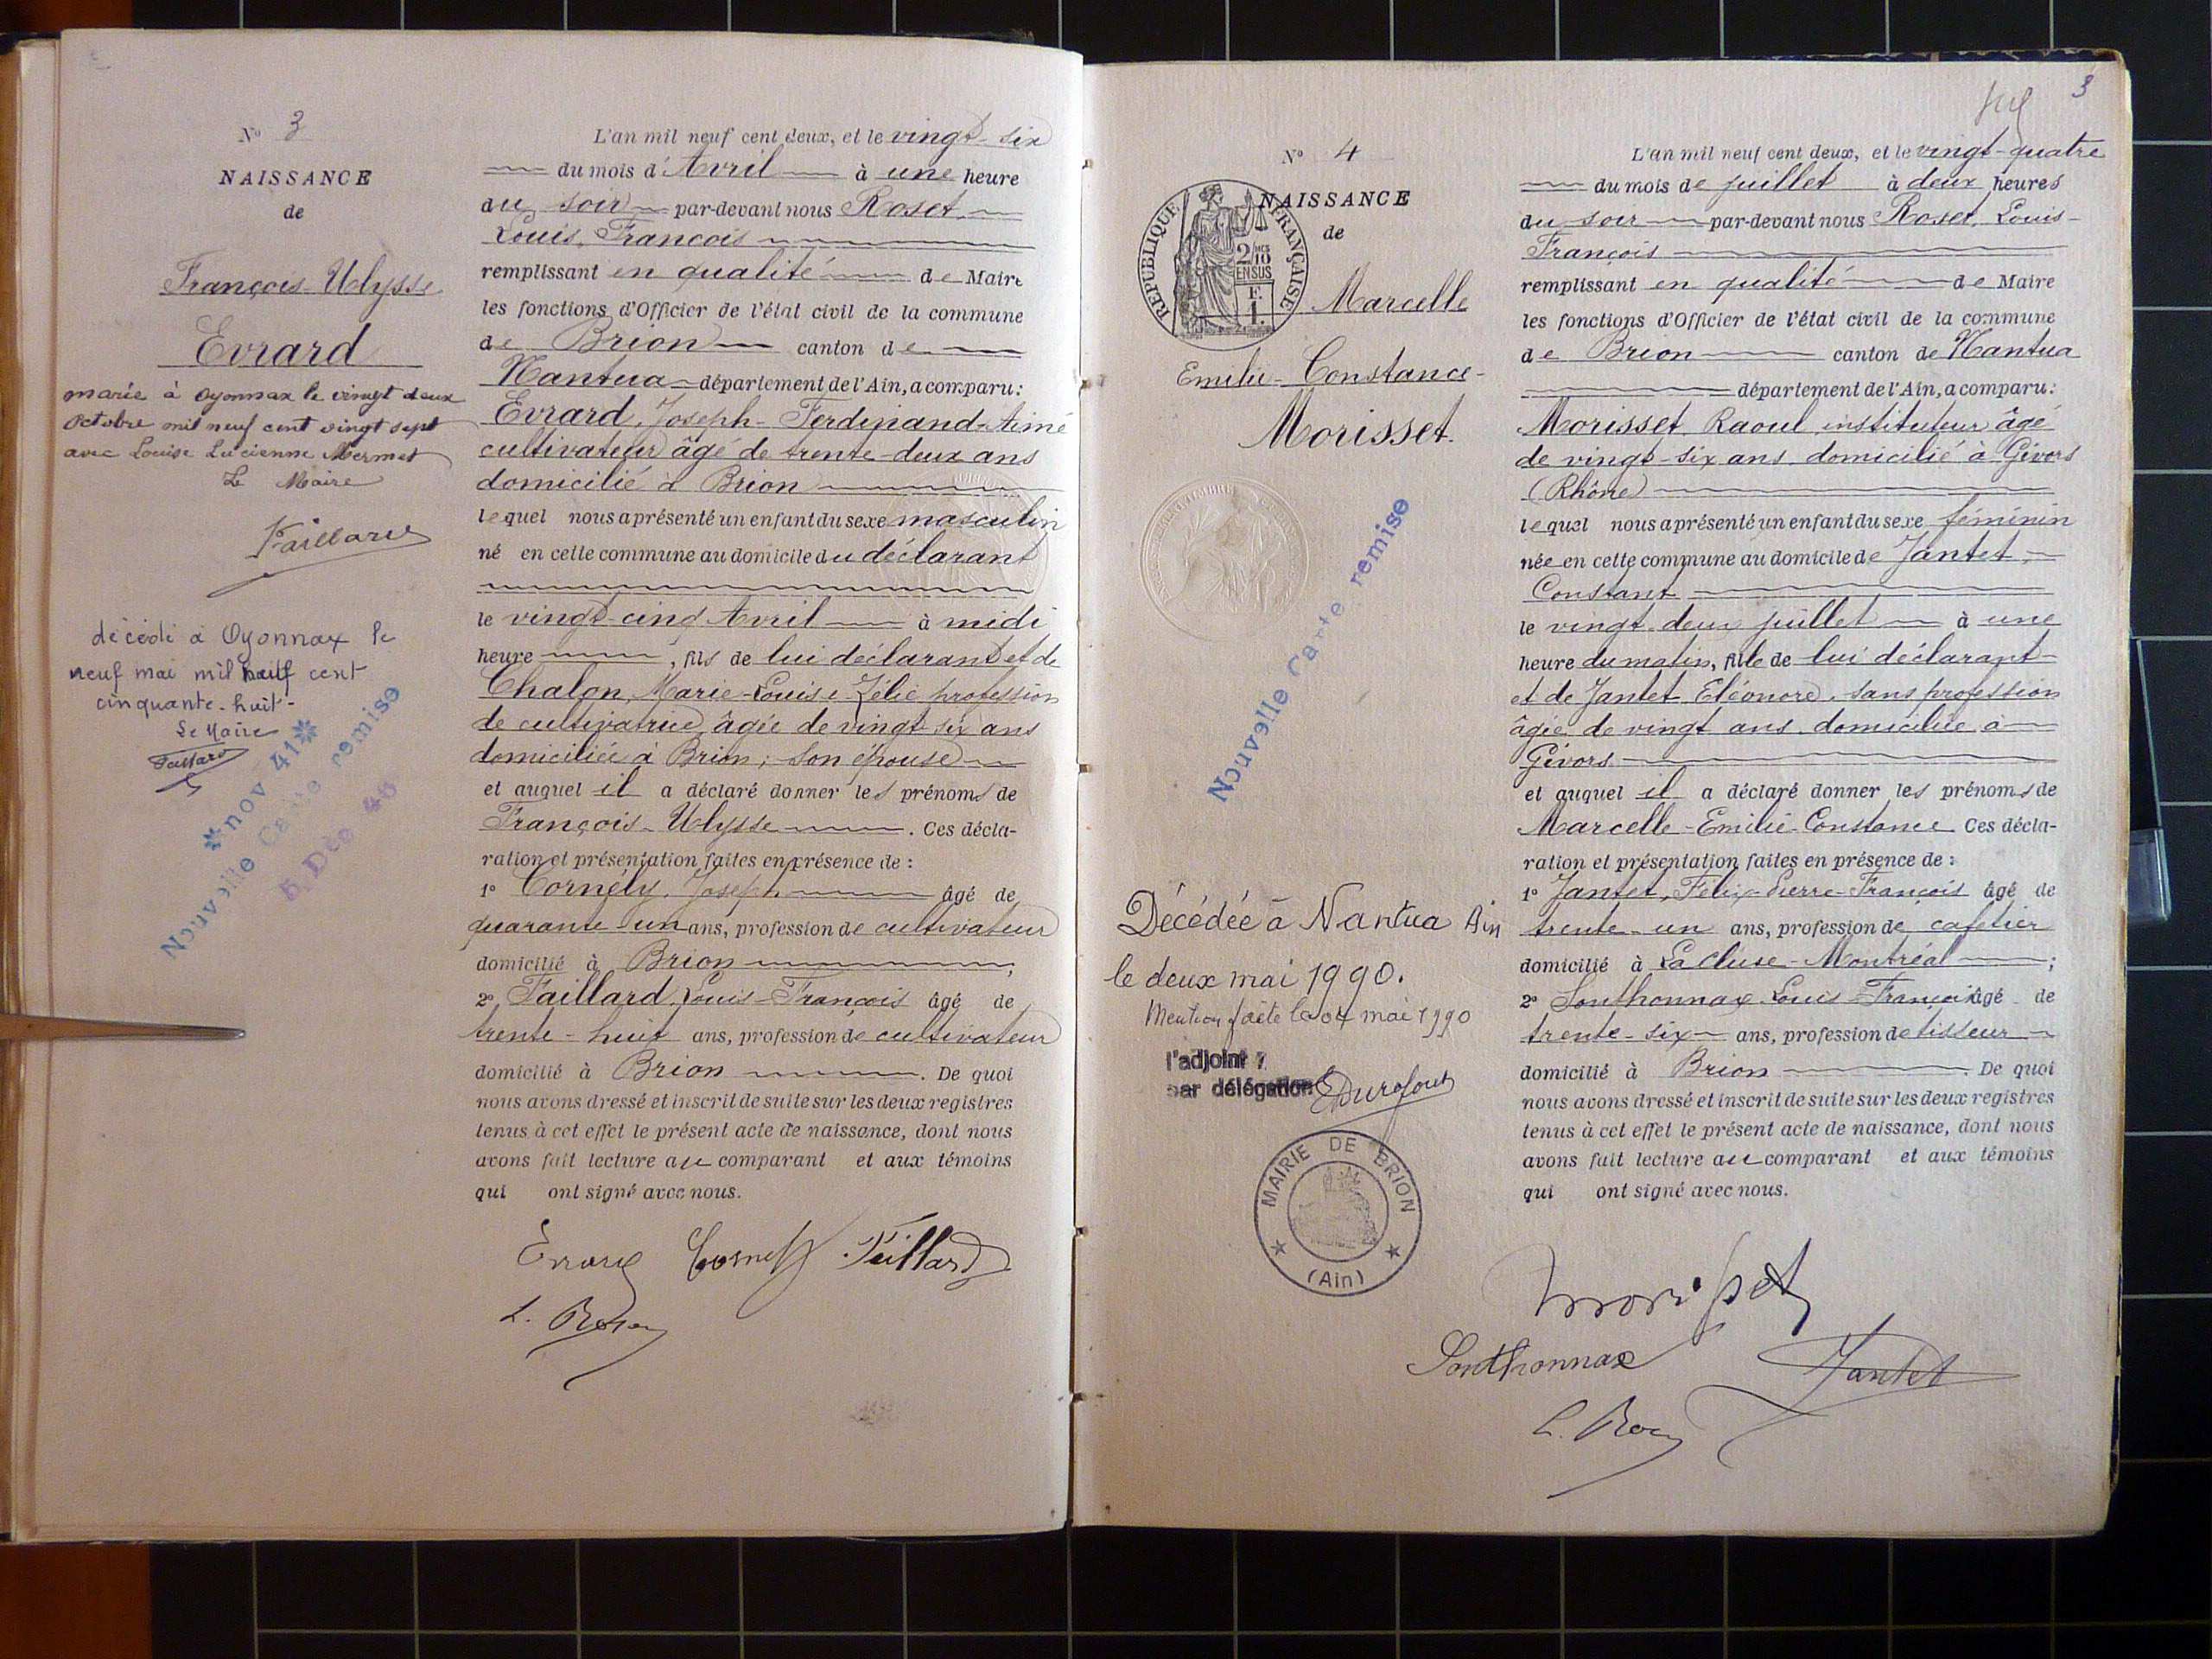 N° 3
NAISSANCE
de
François-Ulysse
Evrard
marié à Oyonnax le vingt deux
Octobre mil neuf cent vingt sept
avec Louise Lucienne Mermet
Le Maire
décédé à Oyonnax le
neuf mai mil neuf cent
cinquante-huit-
Le Maire
nov 41
Nouvelle Carte remise
5 Déc 46
L'an mil neuf cent deux, et le vingt-six
du mois d'Avril à une heure
du soir par-devant nous Roset
Louis, François
remplissant en qualité de Maire
les fonctions d'Officier de l'état civil de la commune
de Brion canton de
Nantua département de l'Ain, a comparu:
Evrard, Joseph-Ferdinand-Aimé
cultivateur âgé de trente-deux ans
domicilié à Brion
lequel nous a présenté un enfant du sexe masculin
né en cette commune au domicile du déclarant
le vingt-cinq Avril à midi
heure , fils de lui déclarant et de
Chalon, Marie-Louise-Zélie profession
de cultivatrice âgée de vingt-six ans
domiciliée à Brion; son épouse
et auquel il a déclaré donner les prénoms de
François-Ulysse . Ces décla-
ration et présentation faites en présence de :
1° Cornély, Joseph âgé de
quarante un ans, profession de cultivateur
domicilié à Brion ;
2° Taillard Louis-François âgé de
trente-huit ans, profession de cultivateur
domicilié à Brion . De quoi
nous avons dressé et inscrit de suite sur les deux registres
tenus à cet effet le présent acte de naissance, dont nous
avons fait lecture au comparant et aux témoins
qui ont signé avec nous.
Evrard Cornély Taillard
L. Roset
3
N° 4
NAISSANCE
de
RÉPUBLIQUE FRANÇAISE
2/10
EN SUS
Marcelle
Emilie-Constance-
Morisset.
Nouvelle Carte remise
Décédée à Nantua Ain
le deux mai 1990.
Mention faite le 04 mai 1990
l'adjoint
par délégation
MAIRIE DE BRION
(Ain)
L'an mil neuf cent deux, et le vingt-quatre
du mois de juillet à deux heures
du soir par-devant nous Roset, Louis-
François
remplissant en qualité de Maire
les fonctions d'Officier de l'état civil de la commune
de Brion canton de Nantua
département de l'Ain, a comparu:
Morisset Raoul instituteur âgé
de vingt-six ans domicilié à Givors
(Rhône)
lequel nous a présenté un enfant du sexe féminin
née en cette commune au domicile de Jantet,
Constant
le vingt-deux juillet à une
heure du matin, fille de lui déclarant
et de Jantet Eléonore, sans profession
âgée de vingt ans domiciliée à
Givors
et auquel il a déclaré donner les prénoms de
Marcelle-Emilie-Constance. Ces décla-
ration et présentation faites en présence de :
1° Jantet, Félix-Pierre-François âgé de
trente-un ans, profession de cafetier
domicilié à La Cluse-Montréal ;
2° Sonthonnax Louis-François âgé de
trente-six ans, profession de tisseur
domicilié à Brion . De quoi
nous avons dressé et inscrit de suite sur les deux registres
tenus à cet effet le présent acte de naissance, dont nous
avons fait lecture au comparant et aux témoins
qui ont signé avec nous.
Morisset
Sonthonnax Jantet
L. Roset